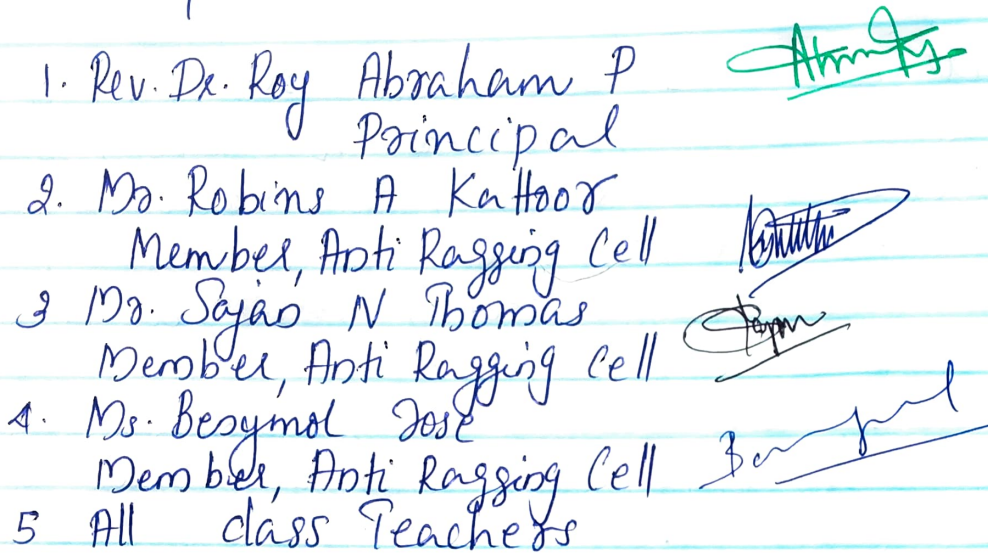 1. Rev. Dr. Roy Abraham P
Principal
2. Mr. Robins A Kattoor
Member, Anti Ragging Cell
3 Mr. Sajan N Thomas
Member, Anti Ragging Cell
4. Ms. Besymol Jose
Member, Anti Ragging Cell
5 All class Teachers